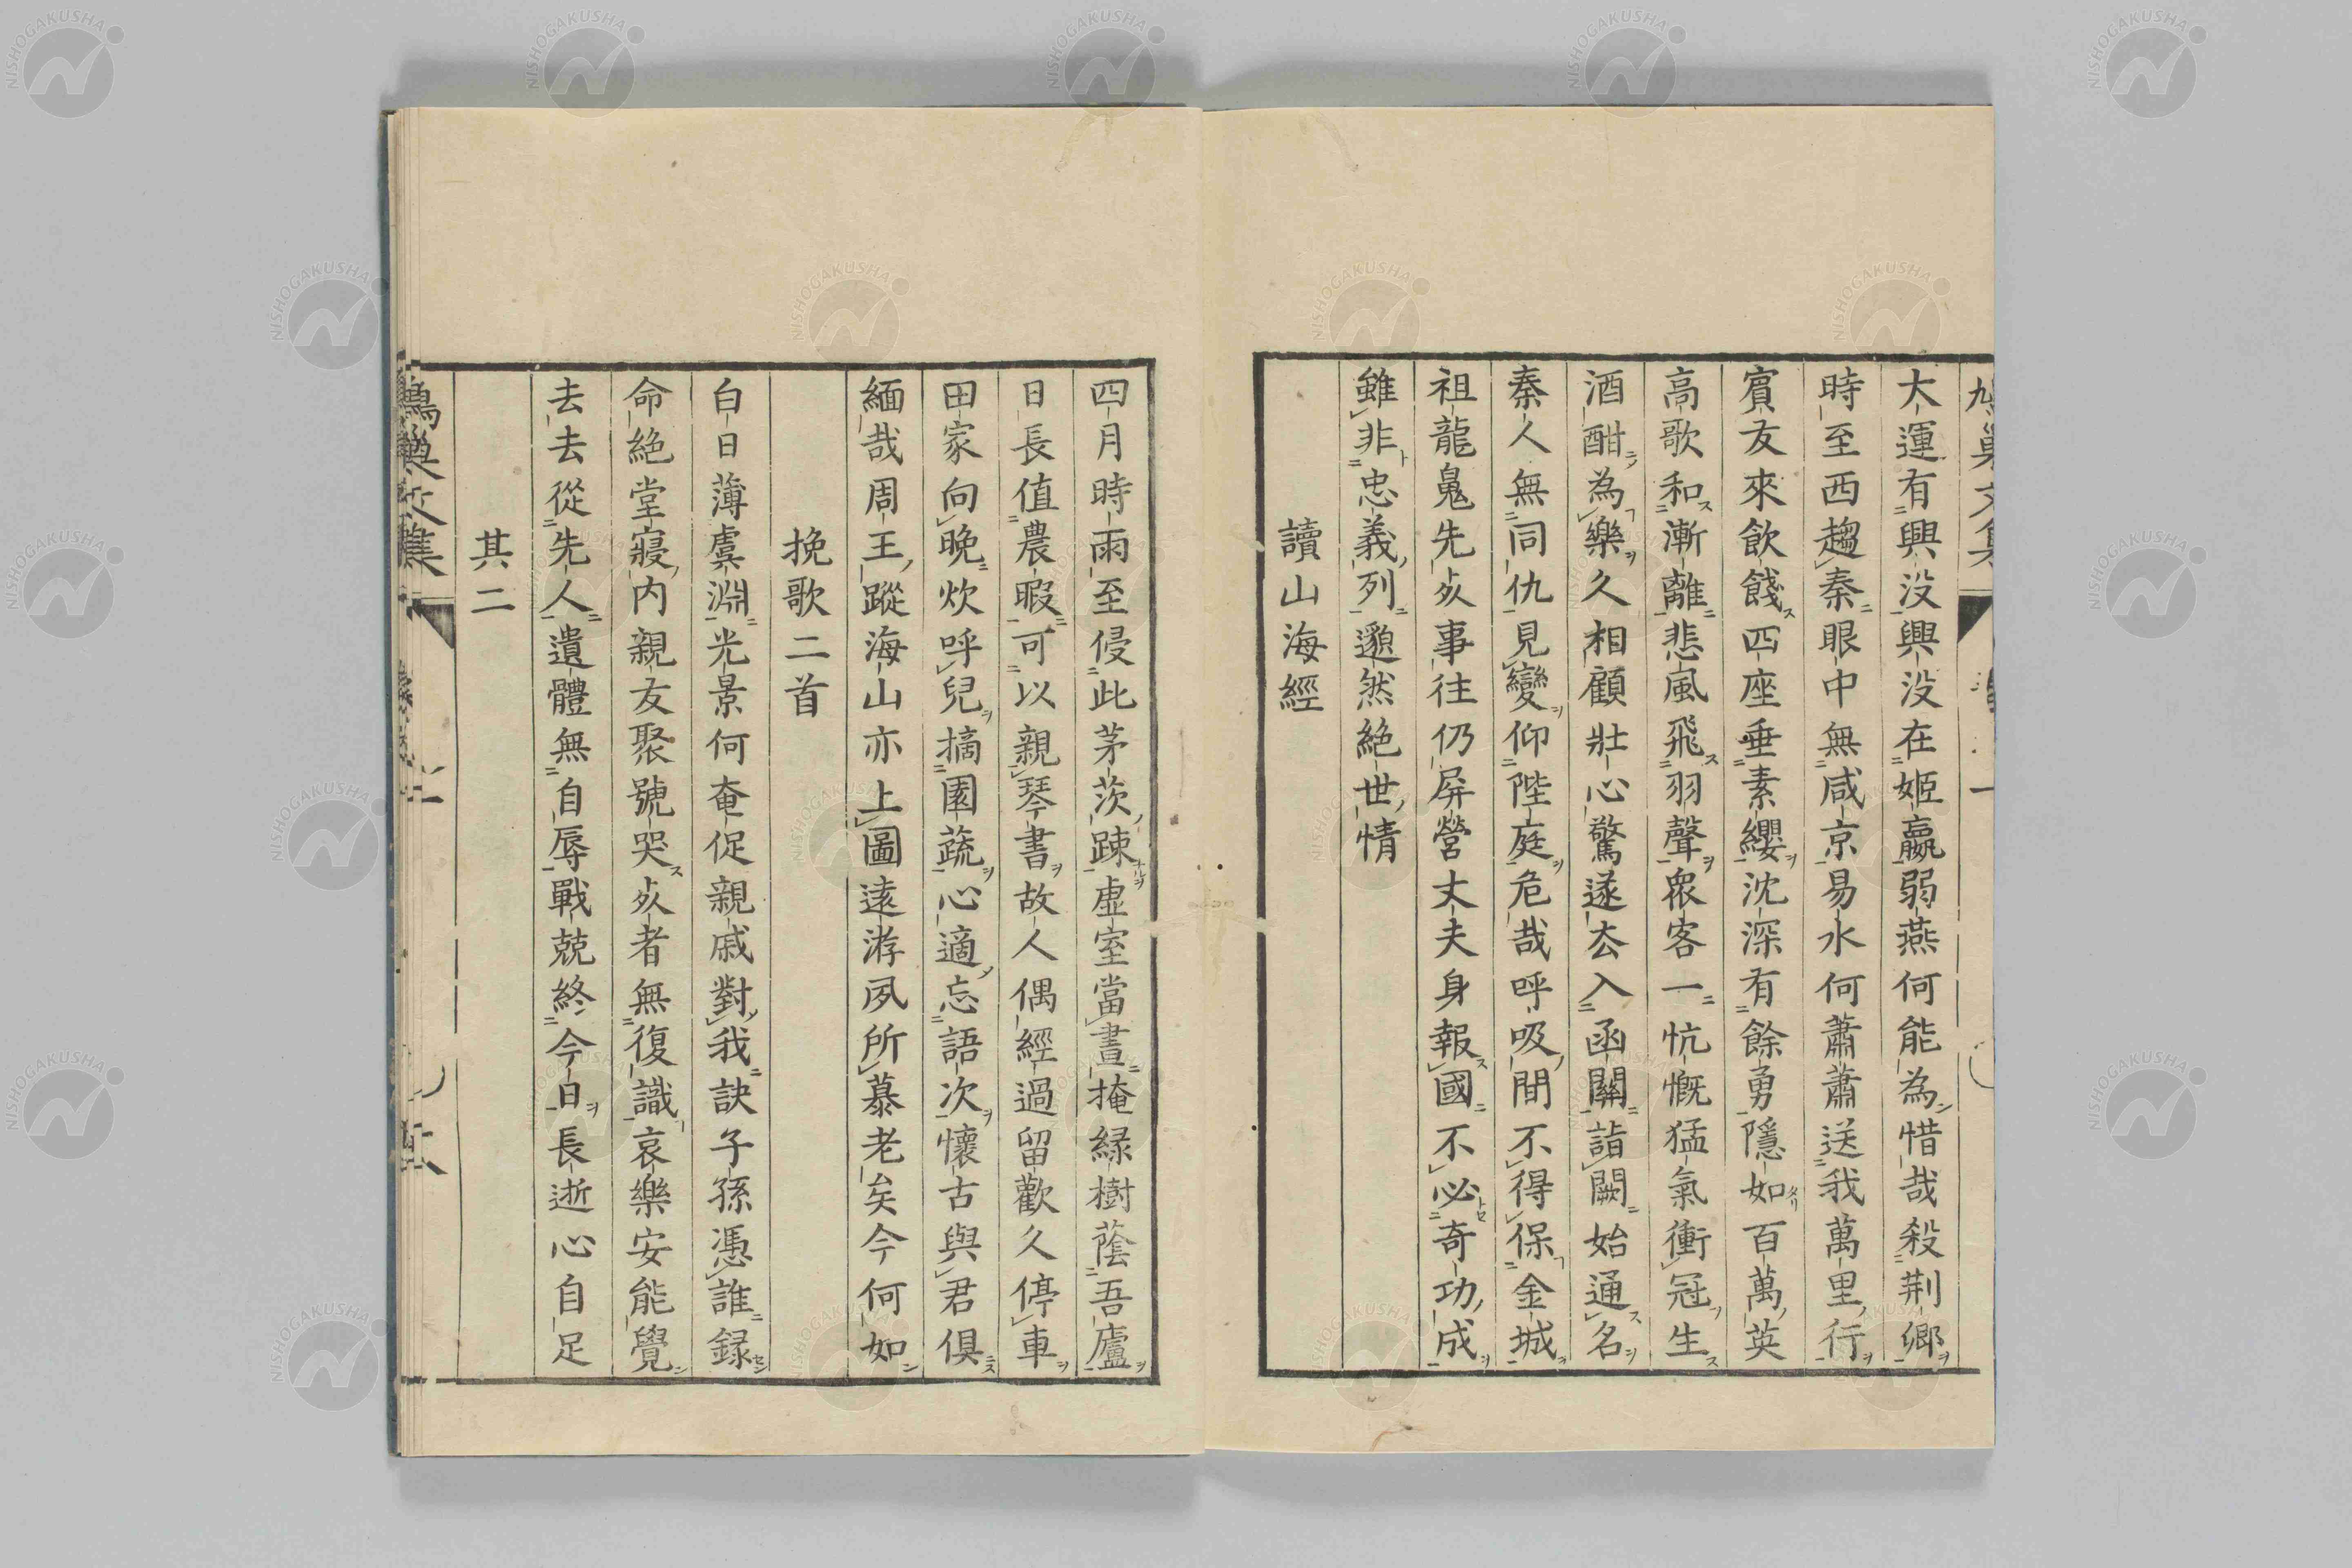 大運有興没興没在姬嬴弱燕何能為惜哉殺荆鄉
時至西趨秦眼中無咸京易水何蕭蕭送我萬里行
賓友來飲餞四座垂素纓沈深有餘勇隱如百萬英
高歌和漸離悲風飛羽聲衆客一忼慨猛氣衝冠生
酒酣為樂久相顧壯心驚遂去入函關詣闕始通名
秦人無同仇見變仰陛庭危哉呼吸間不得保金城
祖龍鬼先死事往仍屏營丈夫身報國不必奇功成
雖非忠義列邈然絶世情
讀山海經
四月時雨至侵此茅茨踈虛室當晝掩緑樹蔭吾廬
日長值農暇可以親琴書故人偶經過留歡久停車
田家向晚炊呼兒摘園蔬心適忘語次懷古與君俱
緬哉周王蹤海山亦上圖遠游夙所慕老矣今何如
挽歌二首
白日薄虞淵光景何奄促親戚對我訣子孫憑誰録
命絶堂寢内親友聚號哭死者無復識哀樂安能覺
去去從先人遺體無自辱戰兢終今日長逝心自足
其二
NISHOGAKUSHA